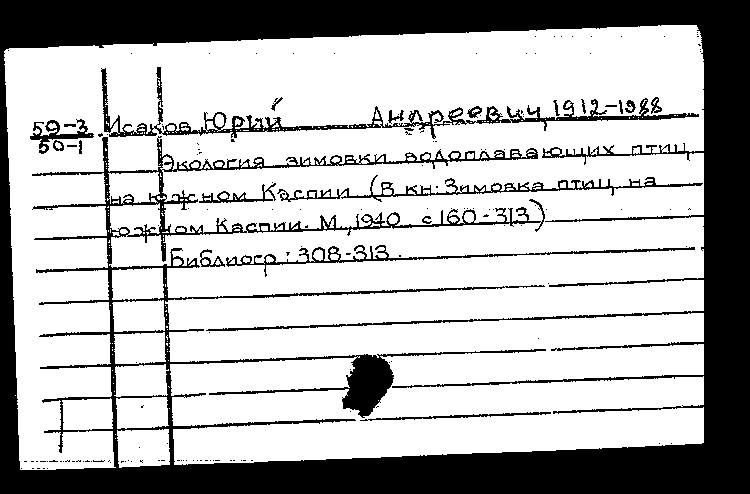 59-3 Исаков, Юрий Андреевич, 1912-1988
50-1
Экология зимовки водоплавающих птиц
на южном Каспии (В кн: Зимовка птиц на
южном Каспии. М., 1940 с 160-313)
Библиогр: 308-313.